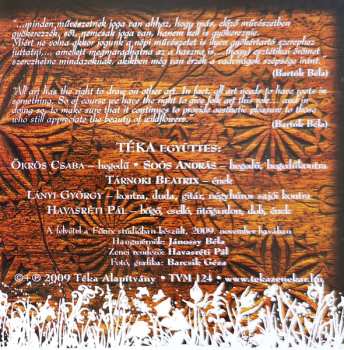 "...minden művészetnek joga van ahhoz, hogy más, előző művészetben
gyökerezzék, sőt, nemcsak joga van, hanem kell is gyökereznie.
Miért ne volna akkor jogunk a népi művészetet is ilyen gyökértartó szerephez
juttatni,... amellett megmaradhatna az a haszna is, ... hogy esztétikai örömet
szerezhetne mindazoknak, akikben még van érzék a vadvirágok szépsége iránt."
(Bartók Béla)
"All art has the right to draw on other art. In fact, all art needs to have roots in
something. So of course we have the right to give folk art this role... and in
doing so, to make sure that it continues to provide aesthetic pleasure to those
who still appreciate the beauty of wildflowers."
(Bartók Béla)
TÉKA EGYÜTTES:
ÖKRÖS CSABA – hegedű • SOÓS ANDRÁS – hegedű, hegedűkontra
TÁRNOKI BEATRIX – ének
LÁNYI GYÖRGY – kontra, duda, gitár, négyhúros sajói kontra
HAVASRÉTI PÁL – bőgő, cselló, ütőgardon, dob, ének
A felvétel a Fönix stúdióban készült, 2009. november havában
Hangmérnök: Jánossy Béla
Zenei rendező: Havasréti Pál
Fotó, grafika: Barcsik Géza
©+℗ 2009 Téka Alapítvány • TVM 124 • www.tekazenekar.hu